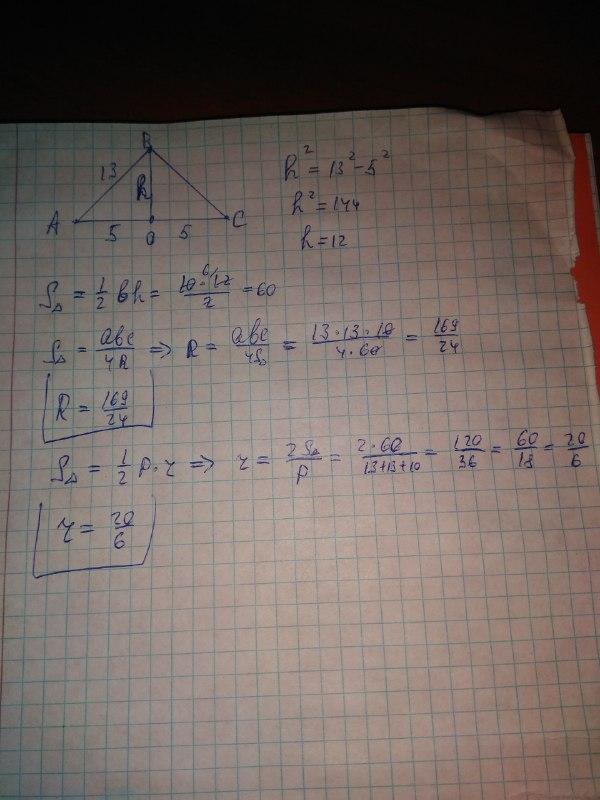 B
13
h
A
C
5
O
5
h² = 13² - 5²
h² = 144
h = 12
S△ = 1/2 bh = 10·12/2 = 60
S△ = abc/4R ⇒ R = abc/4S△ = 13·13·10/4·60 = 169/24
R = 169/24
S△ = 1/2 P·r ⇒ r = 2S△/P = 2·60/13+13+10 = 120/36 = 60/18 = 20/6
r = 20/6